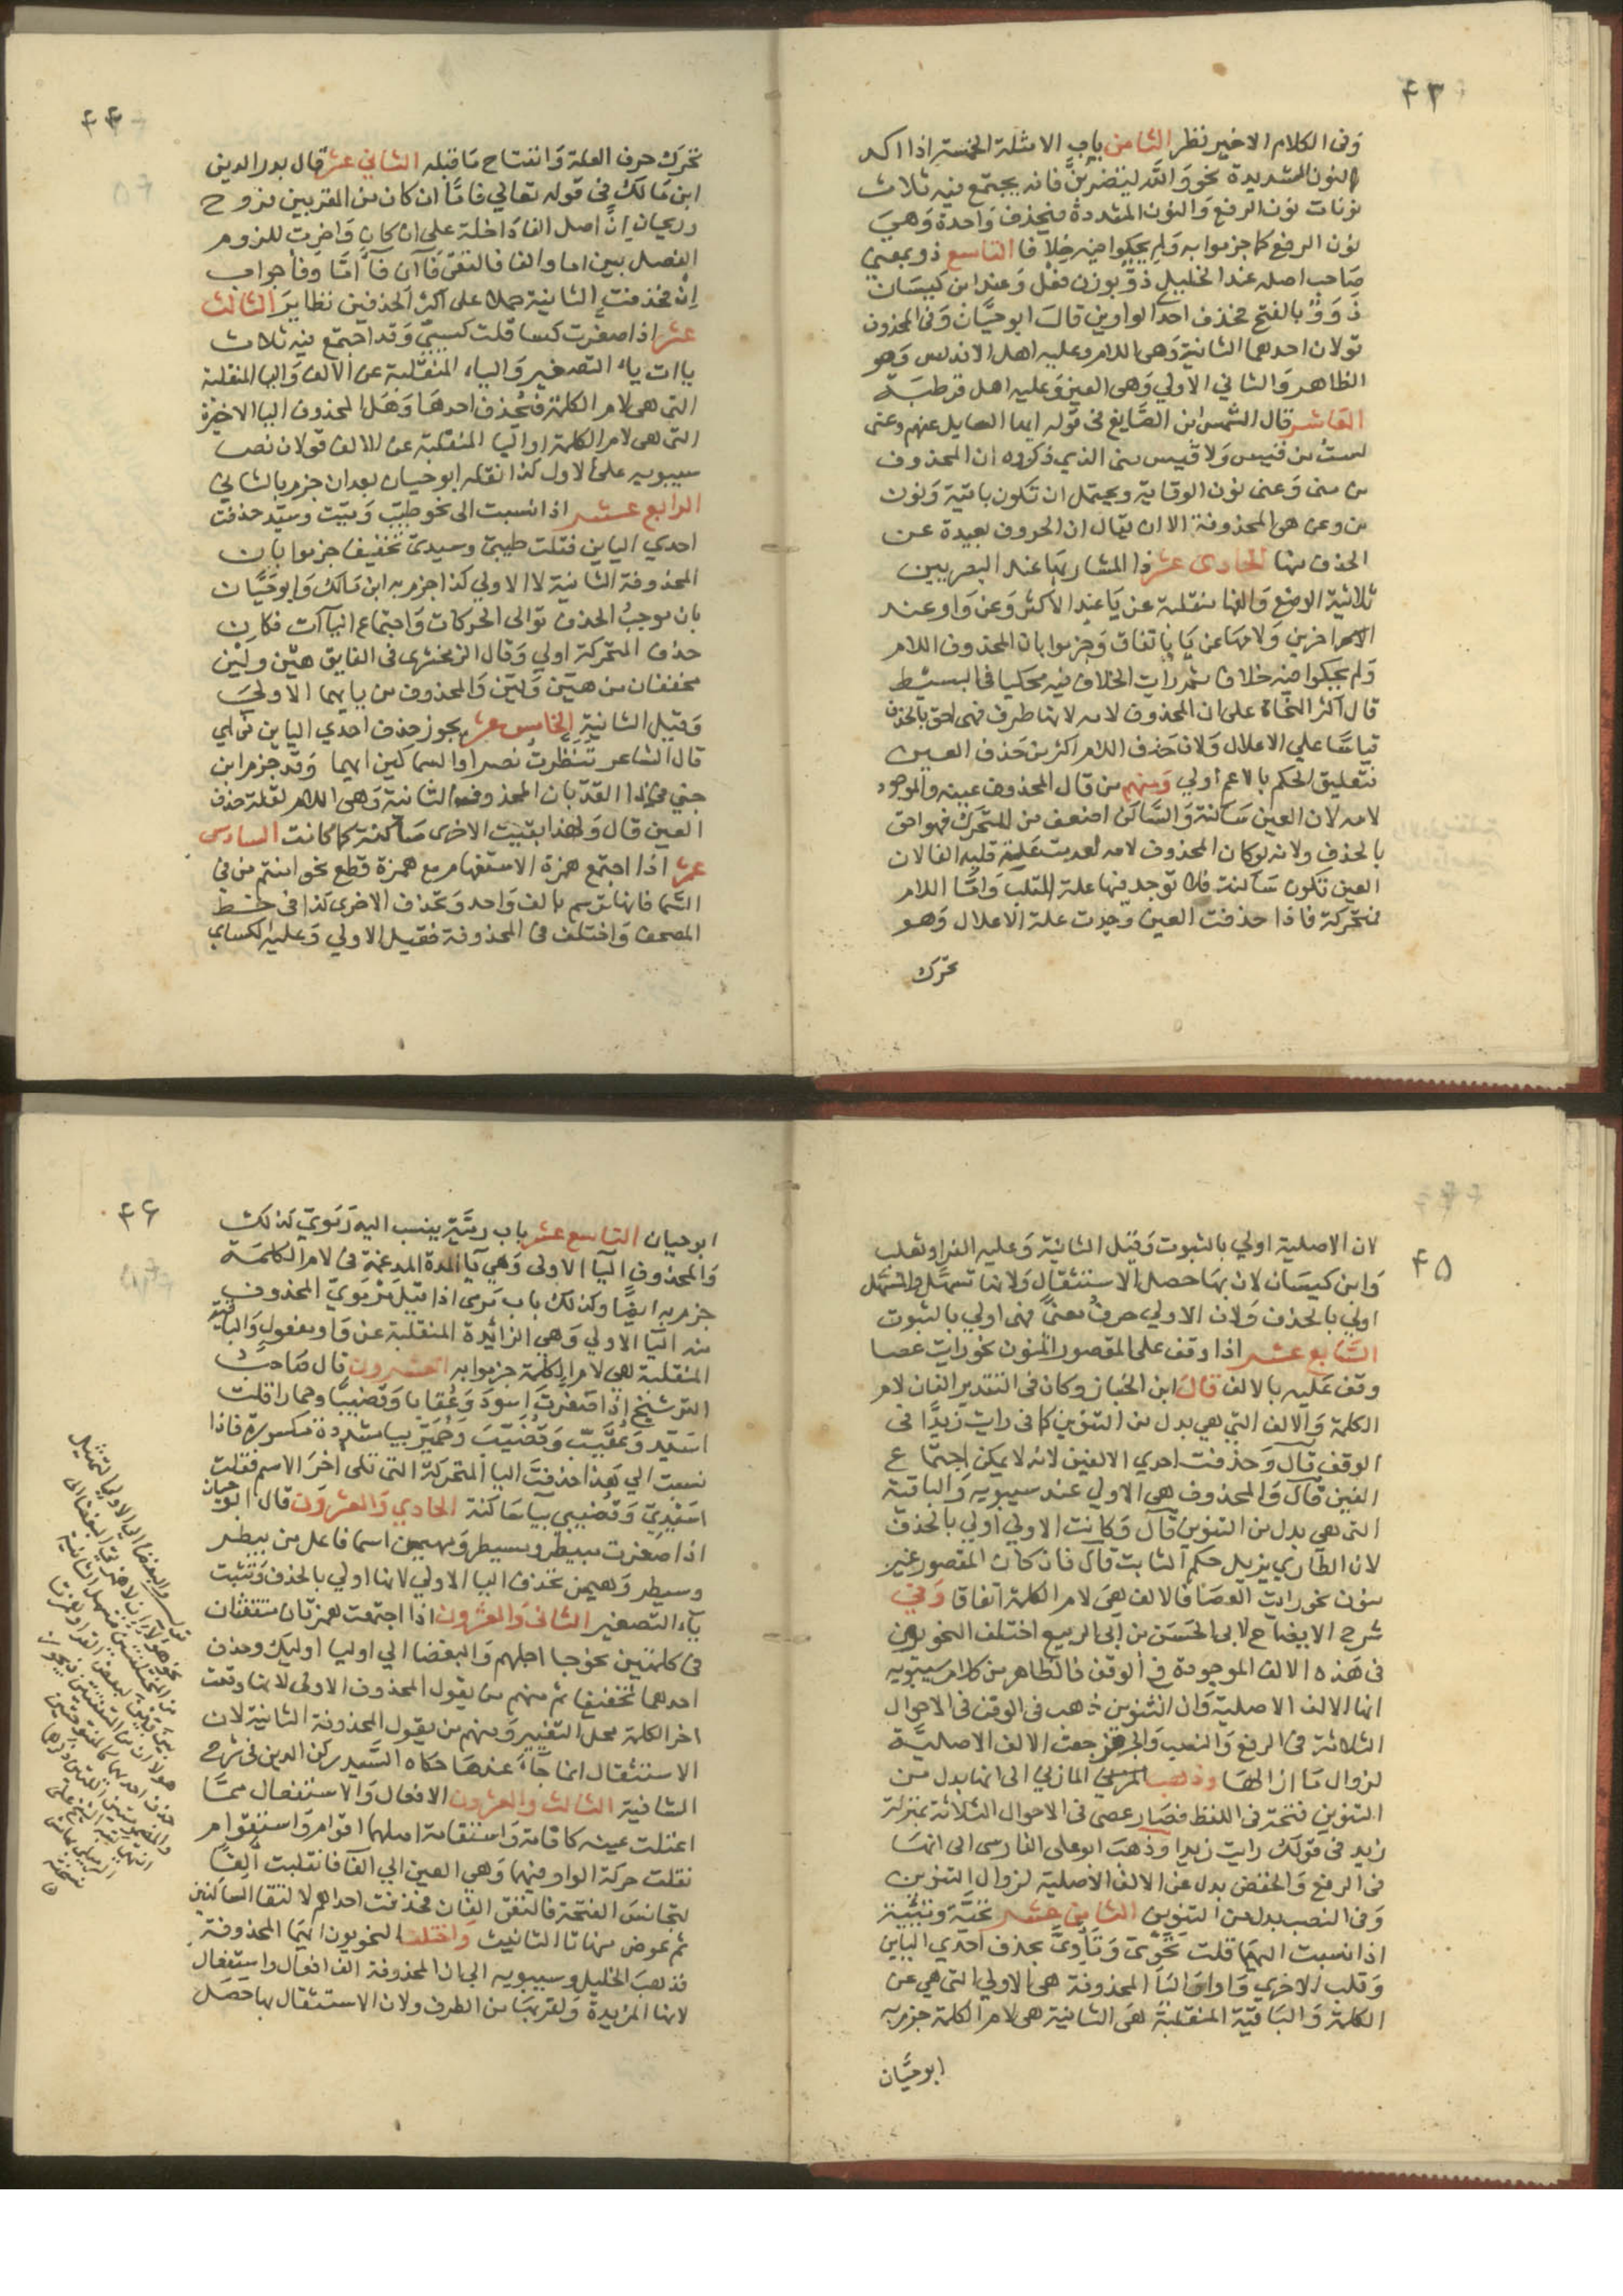 ٤٣
وفى الكلام الاخير نظر الثامن باب الامثلة الخمسة اذا اكد
بالنون المشديدة نحو والله لينضربنّ فانه يجتمع فيه ثلاث
نونات نون الرفع والنون المشددة فيحذف واحدة وهي
نون الرفع كما جزموا به ولم يحكوا فيه خلافا التاسع ذو بمعنى
صاحب اصله عند الخليل ذوّ بوزن فعل وعند ابن كيسان
ذَوَوٌ بالفتح فحذف احد الواوين قال ابو حيّان وفى المحذوف
قولان احدهما الثانية وهى اللام وعليه اهل الاندلس وهو
الظاهر والثاني الاولي وهى العين وعليه اهل قرطبة
العاشر قال الشمس ابن الصّايغ فى قوله ايها السايل عنهم وعنى
لست من قيس ولا قيس منى الذي ذكروه ان المحذوف
من منى وعنى نون الوقاية ويحتمل ان تكون باقية ونون
من وعن هى المحذوفة الا ان يقال ان الحروف بعيدة عن
الحذف منها الحادى عشر ذا المشار بها عند البصريين
ثلاثية الوضع والفها منقلبة عن يا عند الاكثر وعن واو عند
الاخرين ولامها عن يا باتفاق وجزموا بان المحذوف اللام
ولم يحكوا فيه خلافا ثم رايت الخلاف فيه محكيا فى البسيط
قال اكثر النحاة على ان المحذوف لامه لانها طرف فهى احق بالحذف
قياسًا علي الاعلال ولان حذف اللام اكثر من حذف العين
فتعليق الحكم بالاعم اولي ومنهم من قال المحذوف عينه والموجود
لامه لان العين ساكنة والساكن اضعف من المتحرك فهو احق
بالحذف ولانه لوكان المحذوف لامه لعدمت علة قلبه الفا لان
العين تكون ساكنة فلا توجد فيها علة القلب وامّا اللام
فمتحركة فاذا حذفت العين وجدت علة الاعلال وهو
تحرّك
٤٤
تحرّك حرف العلة وانفتاح ما قبله الثاني عشر قال بدر الدين
ابن مالك فى قوله تعالي فامّا ان كان من المقربين فروح
وريحان انّ اصل الفا داخلة على ان كان واخرت للزوم
الفصل بين اما والفا فالتقى فآان فآ امّا وفا جواب
ان فحذفت الثانية حملا على اكثر الحذفين نظاير الثالث
عشر اذا صغرت كسا قلت كسيىّ وقد اجتمع فيه ثلاث
ياات ياء التصغير والياء المنقلبة عن الالف واليا المنقلبة
التى هى لام الكلمة فتحذف احدها وهل المحذوف اليا الاخيرة
التى هى لام الكلمة او اليا المنقلبة عن الالف قولان نص
سيبويه على الاول كذا نقله ابو حيان بعد ان جزم بالثاني
الرابع عشر اذا نسبت الى نحو طيّب وميّت وسيّد حذفت
احدي الياين فقلت طيبيّ وسيدىّ تخفيفا جزموا بان
المحذوفة الثانية لا الاولي كذا جزم به ابن مالك وابو حيّان
بان موجب الحذف توالى الحركات واجتماع اليآآت فكان
حذف المتحركة اولي وقال الزمخشرى فى الفايق هيْن وليْن
مخففان من هيّن وليّن والمحذوف من ياييهما الاولي
وقيل الثانية الخامس عشر يجوز حذف احدي الياين من اي
قال الشاعر تنظّرت نصرا والسماكين ايهما وقد جزم ابن
جني فى القدّ بان المحذوفة الثانية وهى اللام لقلة حذف
العين قال ولهذا بقيت الاخرى ساكنة كما كانت السادس
عشر اذا اجتمع همزة الاستفهام مع همزة قطع نحو اامنتم من فى
السما فانها ترسم بالف واحد وتحذف الاخرى كذا فى خط
المصحف واختلف فى المحذوفة فقيل الاولي وعليه الكساي
٤٥
لان الاصلية اولي بالثبوت وقيل الثانية وعليه الفرا وثعلب
وابن كيسان لان بها حصل الاستثقال ولانها تسهّل والمسهل
اولي بالحذف ولان الاولي حرفُ معنىً فهى اولي بالثبوت
السّابع عشر اذا وقف على المقصور المنون نحو رايت عصا
وقف عليه بالالف قال ابن الخباز وكان فى التقدير الفان لام
الكلمة والالف التي هي بدل من التنوين كما فى رايت زيدًا فى
الوقف قال وحذفت احدي الالفين لانه لا يمكن اجتماع
الفين قال والمحذوف هى الاولي عند سيبويه والباقية
التى هى بدل من التنوين قال وكانت الاولي اولي بالحذف
لان الطاري يزيل حكم الثابت قال فان كان المقصور غير
منون نحو رايت العصا فالالف هى لام الكلمة اتفاقا وفي
شرح الايضاح لابى الحسن بن ابى الربيع اختلف النحويون
فى هذه الالف الموجودة فى الوقف فالظاهر من كلام سيبويه
انها الالف الاصلية وان التنوين ذهب فى الوقف فى الاحوال
الثلاثة فى الرفع والنصب والجر فرجعت الالف الاصلية
لزوال ما ازالها وذهب المازني الى انها بدل من
التنوين فتحة فى اللفظ فصار عصى فى الاحوال الثلاثة بمنزلة
زيد فى قولك رايت زيدا وذهب ابو على الفارسى الى انها
فى الرفع والخفض بدل من الالف الاصلية لزوال التنوين
وفى النصب بدل من التنوين الثامن عشر
اذا نسبت اليهما قلت وتاوىّ بحذف احدي الياين
وقلب الاخري واوا واليا المحذوفة هى الاولي التى هي عين
الكلمة والباقية المنقلبة هى الثانية هى لام الكلمة جزم به
ابو حيّان
٤٦
ابو حيان التاسع عشر باب رميّة ينسب اليه رموىّ كذلك
والمحذوف اليآ الاولى وهي يآ المدة المدغمة فى لام الكلمة
جزم به ايضًا وكذلك باب مرمى اذا قيل مرموىّ المحذوف
منه اليآ الاولي وهي الزائدة المنقلبة عن واو مفعول والباقية
المنقلبة هى لام الكلمة جزموا به العشرون قال صاحب
الترشيح اذا صغرت اسود وعقابا وقضيبًا وحمارا قلت
اسيّد وعقيّب وقضيّب وحميّر بيا مشددة مكسورة فاذا
نسبت الي هذا حذفت اليا المتحركة التى تلى اخر الاسم فقلت
اسيْدىّ وقضيبي بيآ ساكنة الحادي والعشرون قال ابو حيان
اذا صغرت مبيطر ومسيطر ومهيمن اسما فاعل من بيطر
وسيطر وهيمن تحذف اليا الاولي لانها اولي بالحذف وتثبت
ياء التصغير الثانى والعشرون اذا اجتمعت همزتان متفقتان
فى كلمتين نحو جا اجلهم والبغضا الي اوليا اوليك وحذف
احدهما تخفيفا ثم منهم من يقول المحذوف الاولى لانها وقعت
اخر الكلمة محل التغيير ومنهم من يقول المحذوفة الثانية لان
الاستثقال انما جاء عندها حكاه السّيد ركن الدين فى شرح
الشافية الثالث والعشرون الافعال والاستفعال ممّا
اعتلت عينه كاقامة واستقامة اصلهما اقوام واستقوام
نقلت حركة الواو فيهما وهى العين الي الفآ فانقلبت الفًا
لتجانس الفتحة فالتقى الفان فحذفت احداهما لالتقا الساكنين
ثم عوض منها تا التانيث واختلف النحويون ايهما المحذوفة
فذهب الخليل وسيبويه الي ان المحذوفة الف افعال واستفعال
لانها المزيدة ولقربها من الطرف ولان الاستثقال بها حصل